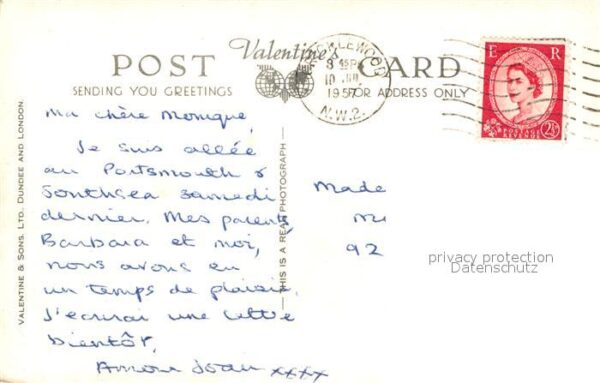 Valentine's
POST CARD
SENDING YOU GREETINGS
FOR ADDRESS ONLY
CRICKLEWOOD
10
1957
N.W.2.
E R
POSTAGE
REVENUE
2½D
VALENTINE & SONS. LTD., DUNDEE AND LONDON.
THIS IS A REAL PHOTOGRAPH
Ma chère Monique,
Je suis allée
au Portsmouth &
Southsea samedi
dernier. Mes parents,
Barbara et moi,
nous avons eu
un temps de plaisir.
J'écrirai une lettre
bientôt.
Amour Joan xxxx
Made
92
privacy protection
Datenschutz